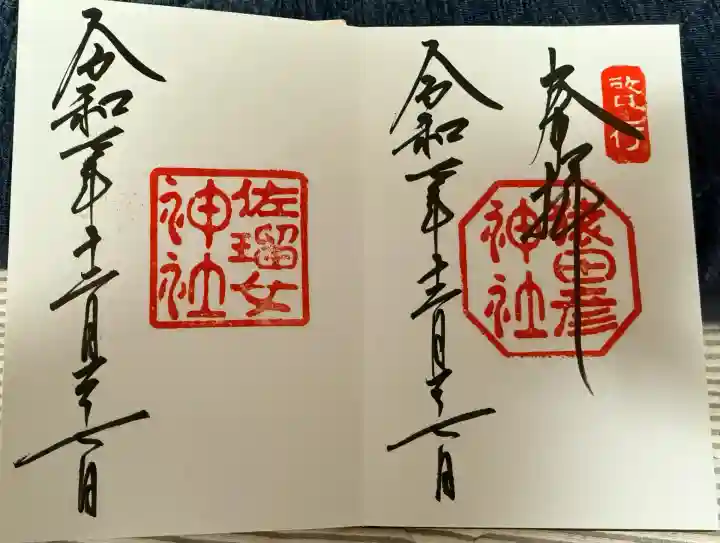 啓行
奉拝
猿田彦
神社
令和年十二月二十七日
佐瑠女
神社
令和年十二月二十七日